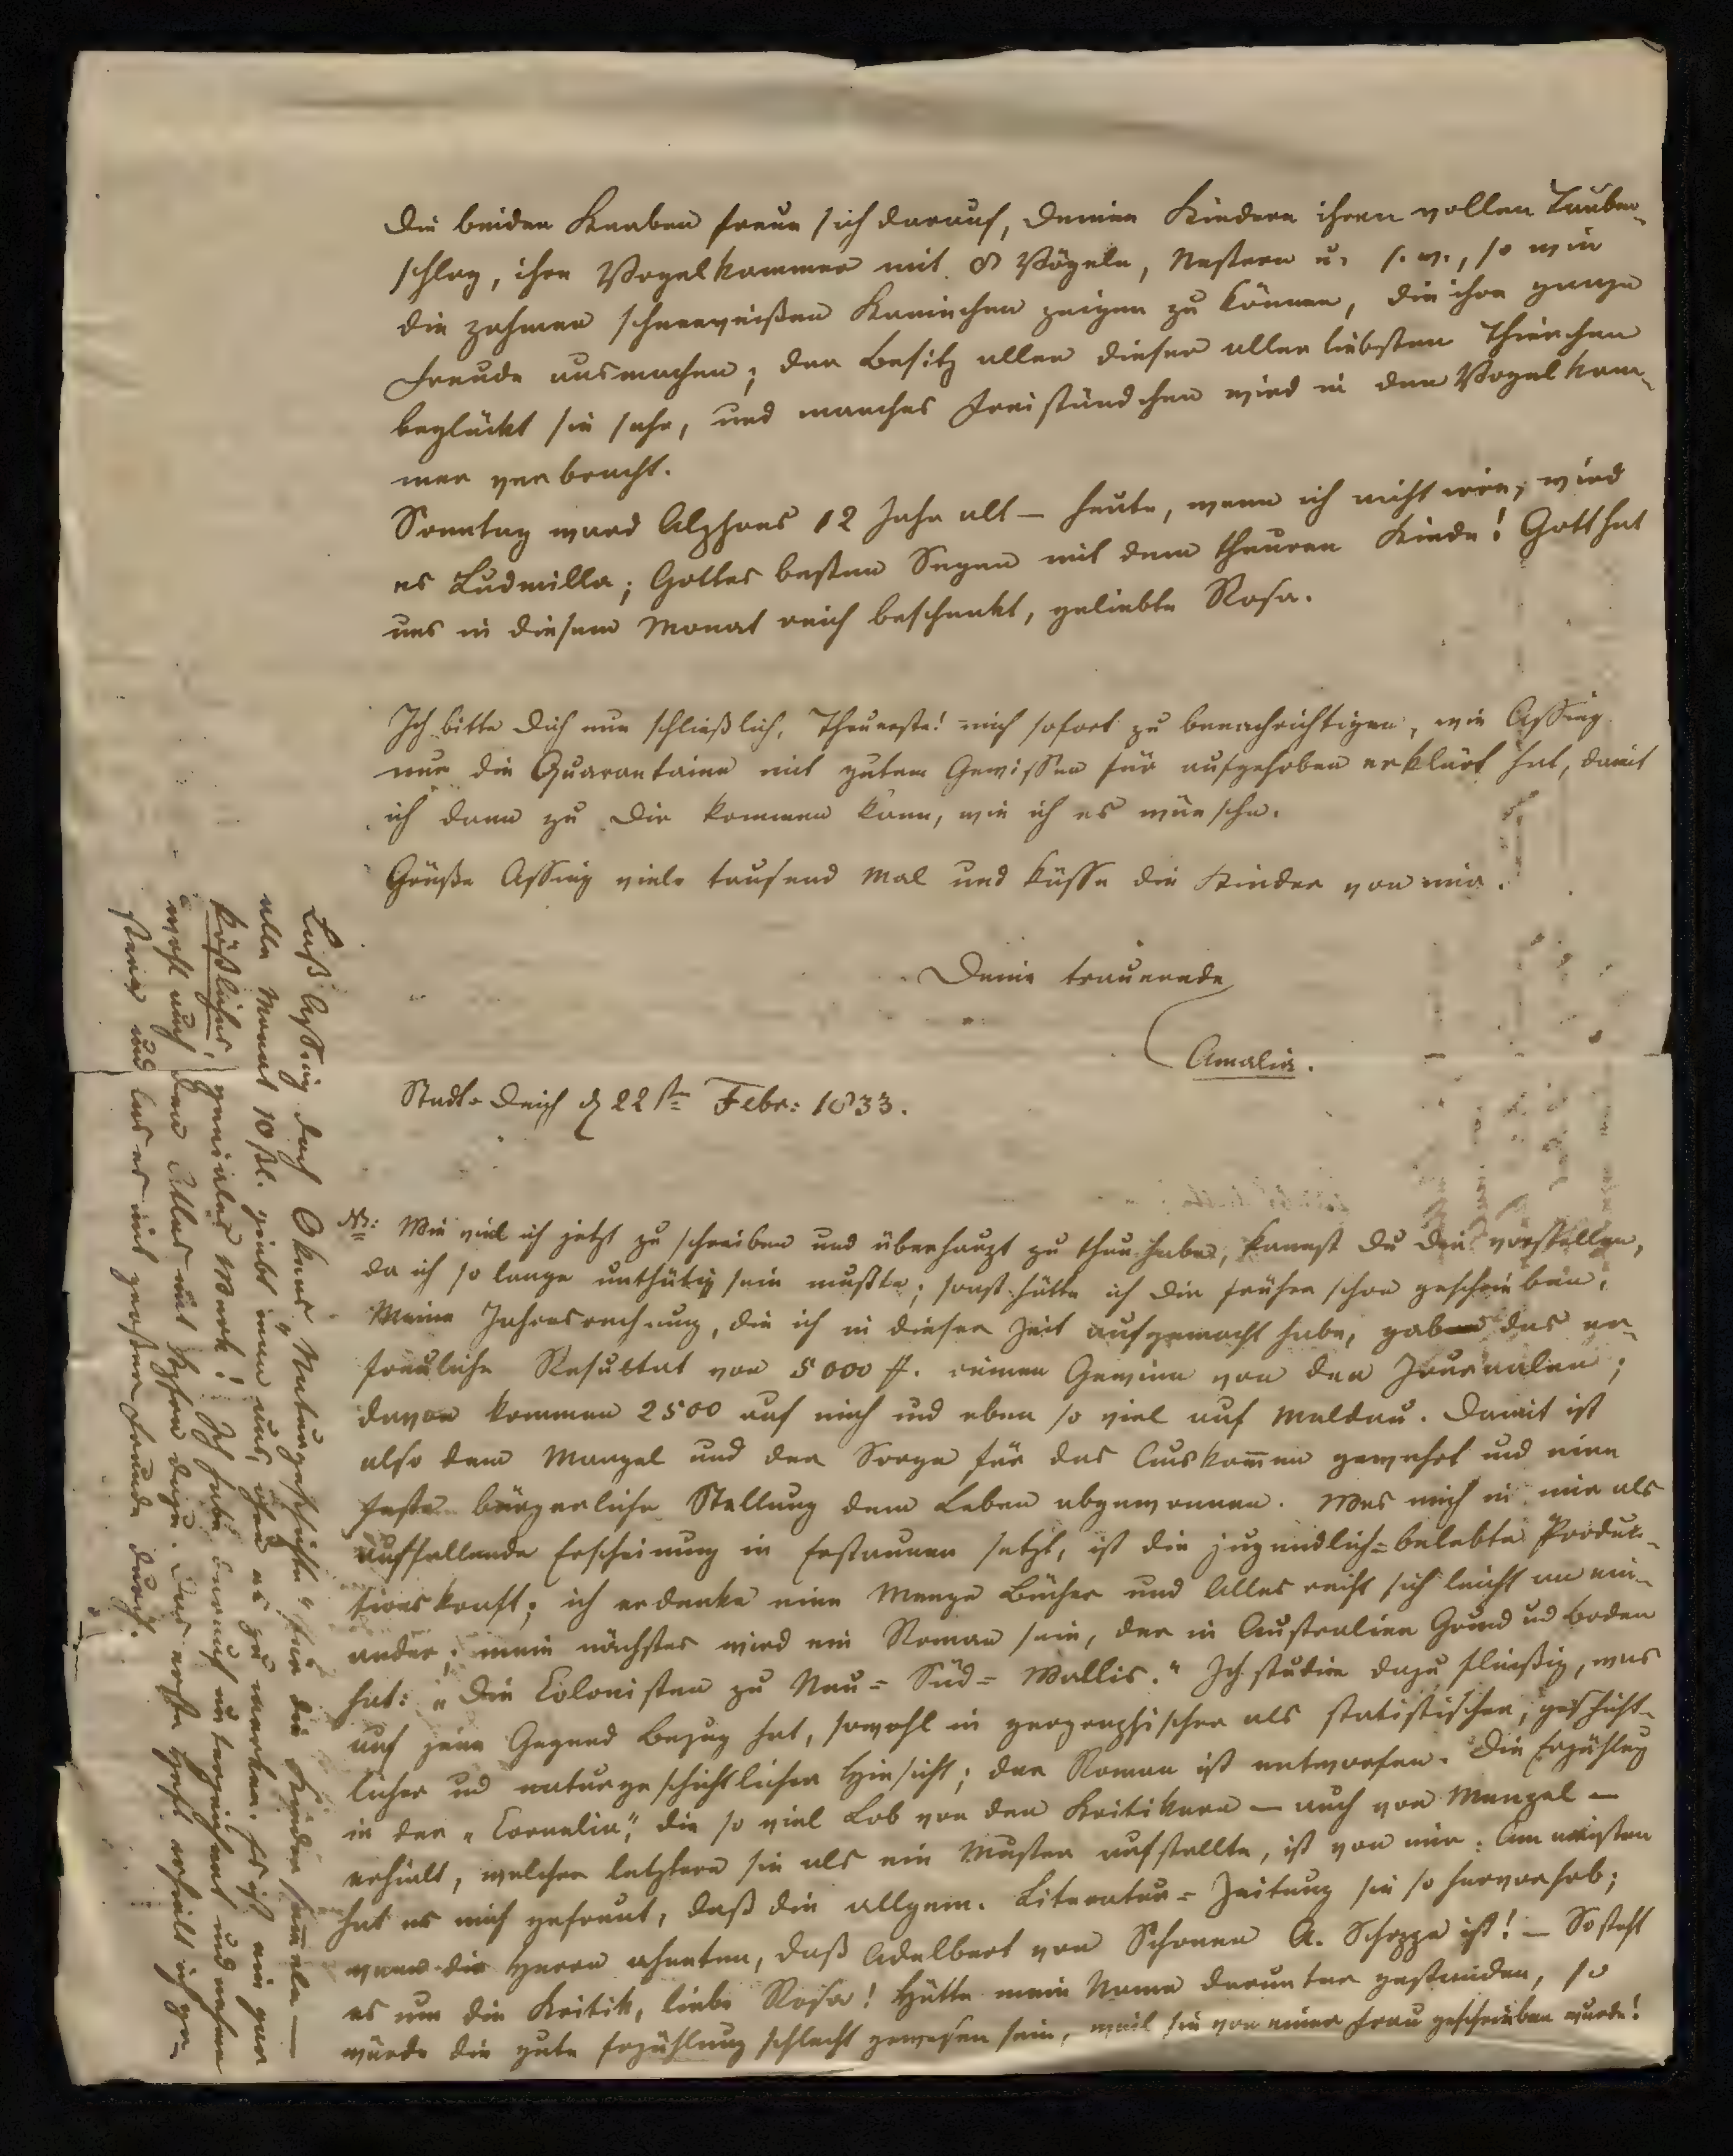 Die beiden Knaben freun sich darauf, Deinen Kindern ihren vollen Tauben-
schlag, ihre Vogelkammer mit 8 Vögeln, Nestern u. s. w., so wie
die zahmen schneeweißen Kaninchen zeigen zu können, die ihre ganze
Freude ausmachen; der Besitz aller dieser allerliebsten Thierchen
beglückt sie sehr, und manches Freistündchen wird in der Vogelkam-
mer verbracht.
Sonntag ward Alphons 12 Jahr alt – heute, wenn ich nicht irre, wird
es Ludmilla; Gottes besten Segen mit dem theuren Kinde! Gott hat
uns in diesem Monat reich beschenkt, geliebte Rosa.
Ich bitte Dich nun schließlich, Theuerste! mich sofort zu benachrichtigen, wie Assing
nur die Quarantaine mit gutem Gewissen für aufgehoben erklärt hat, damit
ich dann zu Dir kommen kann, wie ich es wünsche.
Grüße Assing viele tausend Mal und küsse die Kinder von mir.
Deine trauernde
Amalia.
Stadt-Deich d 22st Febr: 1833.
NB: Wie viel ich jetzt zu schreiben und überhaupt zu thun habe, kannst Du Dir vorstellen,
da ich so lange unthätig sein mußte; sonst hätte ich Dir früher schon geschrieben.
Meine Jahresrechnung, die ich in dieser Zeit aufgemacht habe, gab das er-
freuliche Resultat von 5000 ff. reinen Gewinn von den Journalen;
davon kommen 2500 auf mich und eben so viel auf Maldau. Damit ist
also dem Mangel und der Sorge für das Auskom̅en gewehrt und eine
feste bürgerliche Stellung dem Leben abgewonnen. Was mich in mir als
auffallende Erscheinung in Erstaunen setzt, ist die jugendlich-belebte Produk-
tionskraft; ich erdenke eine Menge Bücher und Alles reiht sich leicht an ein-
ander; mein nächstes wird ein Roman sein, der in Australien Grund und Boden
hat: „Die Colonisten zu Neu-Süd-Wallis." Ich studire dazu fleißig, was
auf jene Gegend Bezug hat, sowohl in geographischer als statistischer, geschicht-
licher und naturgeschichtlicher Hinsicht; der Roman ist entworfen. Die Erzählung
in der „Cornelia", die so viel Lob von den Kritikern – auch von Menzel –
erhielt, welcher letztere sie als ein Muster aufstellte, ist von mir. Am meisten
hat es mich gefreut, daß die allgem. Literatur-Zeitung sie so hervorhob;
wenn die Herren ahneten, daß Adalbert von Schonen A. Schoppe ist! – So steht
es um die Kritik, liebe Rosa! Hätte mein Name darunter gestanden, so
würde die gute Erzählung schlecht gewesen sein, weil sie von einer Frau geschrieben wurde!
Laß Assing doch Okens „Naturgeschichte" für die Kinder sam̅eln –
alle Monat 10 ßl. giebt man aus, ohne es zu merken. Es ist ein gar
köstliches, geniales Werk! Ich habe darauf unterzeichnet und nehme
wohl auch den Atlas mit Kupfern dazu. Das erste Heft erhielt ich ge-
stern und las es mit großer Freude durch.